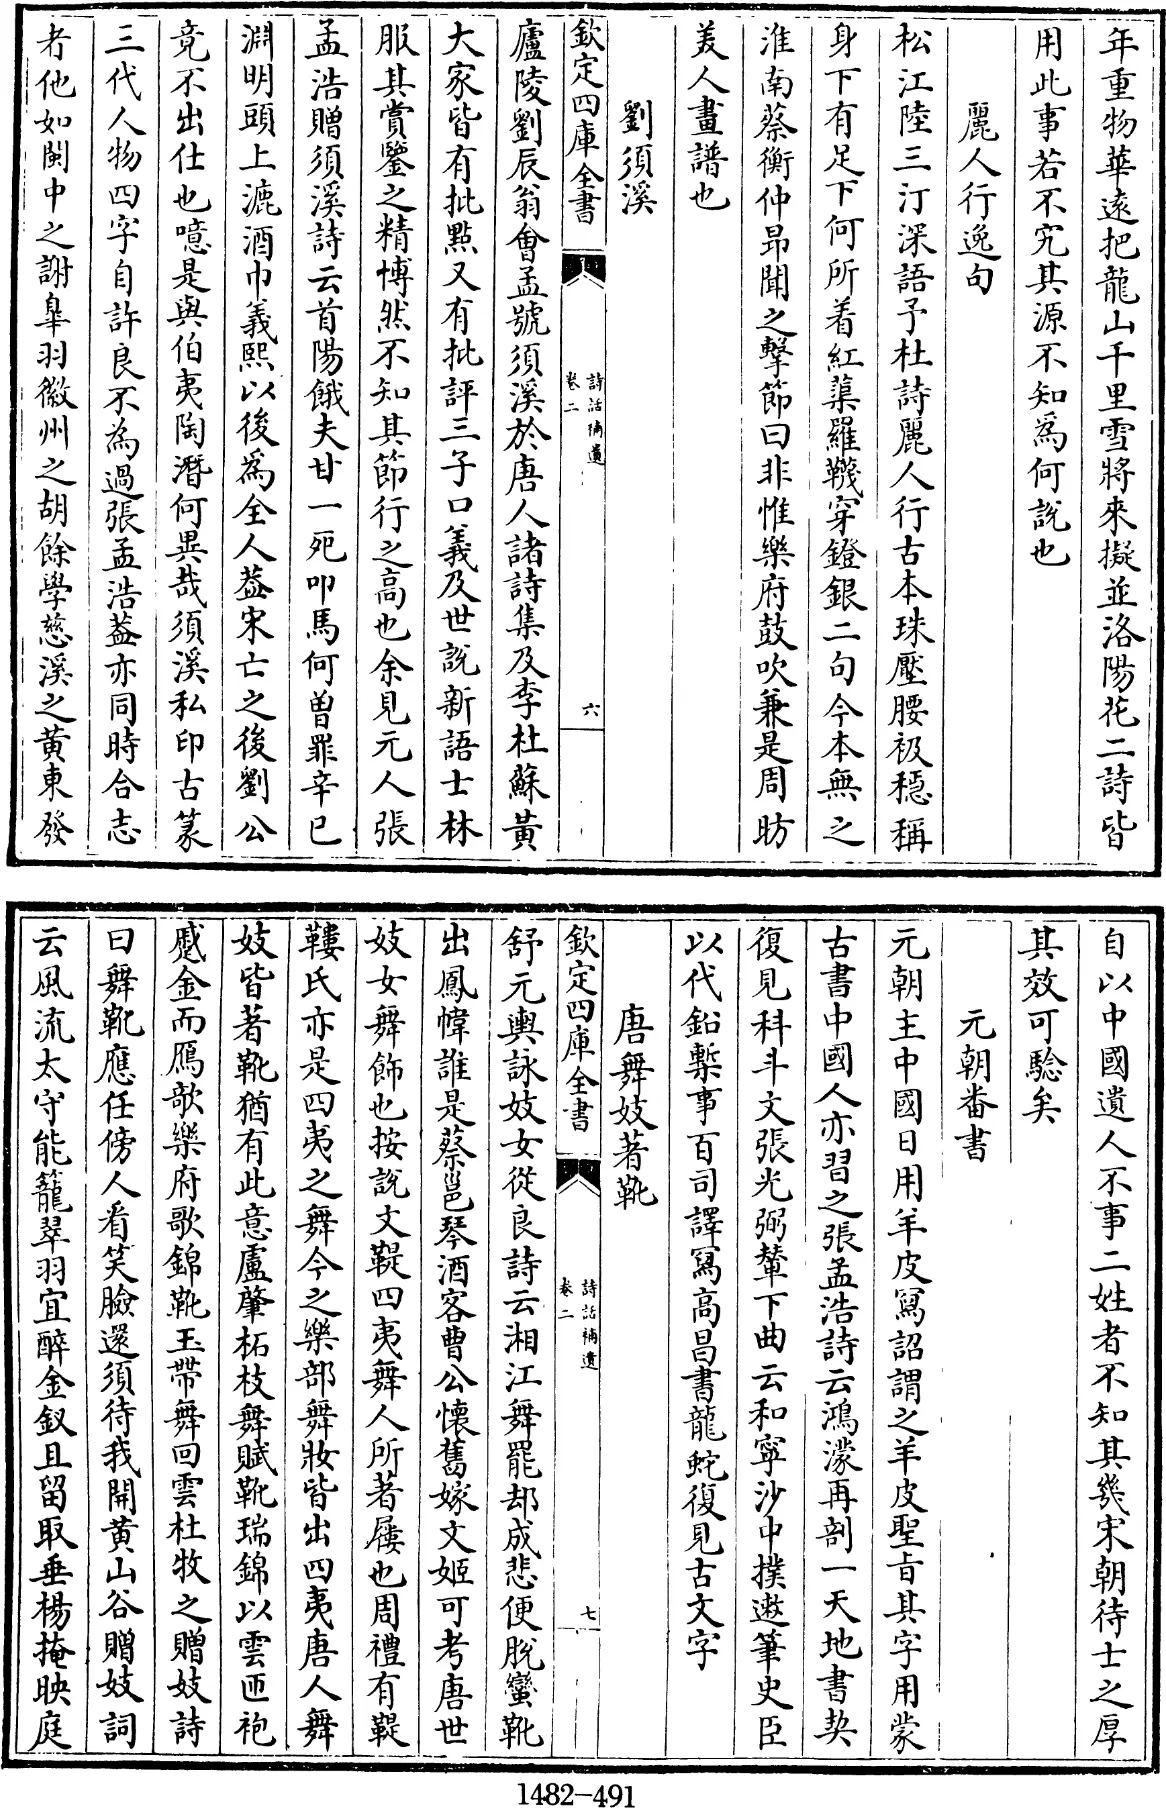 年重物華遠把龍山千里雪將來擬並洛陽花二詩皆
用此事若不究其源不知為何說也
麗人行逸句
松江陸三汀深語予杜詩麗人行古本珠壓腰衱穩稱
身下有足下何所着紅蕖羅襪穿鐙銀二句今本無之
淮南蔡衡仲昻聞之擊節曰非惟樂府鼓吹兼是周昉
美人畫譜也
劉須溪
欽定四庫全書
詩話補遺
卷二
六
廬陵劉辰翁會孟號須溪於唐人諸詩集及李杜蘇黃
大家皆有批點又有批評三子口義及世說新語士林
服其賞鑒之精博然不知其節行之高也余見元人張
孟浩贈須溪詩云首陽餓夫甘一死叩馬何曾罪辛巳
淵明頭上漉酒巾義熙以後為全人葢宋亡之後劉公
竟不出仕也噫是與伯夷陶潛何異哉須溪私印古篆
三代人物四字自許良不為過張孟浩葢亦同時合志
者他如閩中之謝皐羽徽州之胡餘學慈溪之黃東發
自以中國遺人不事二姓者不知其幾宋朝待士之厚
其效可騐矣
元朝番書
元朝主中國日用羊皮寫詔謂之羊皮聖旨其字用蒙
古書中國人亦習之張孟浩詩云鴻濛再剖一天地書契
復見科斗文張光弼輦下曲云和寧沙中撲遬筆史臣
以代鉛槧事百司譯寫高昌書龍蛇復見古文字
唐舞妓著靴
欽定四庫全書
詩話補遺
卷二
七
舒元輿詠妓女從良詩云湘江舞罷却成悲便脫蠻靴
出鳳幃誰是蔡邕琴酒客曹公懷舊嫁文姬可考唐世
妓女舞飾也按說文鞮四夷舞人所著屨也周禮有鞮
鞻氏亦是四夷之舞今之樂部舞妝皆出四夷唐人舞
妓皆著靴猶有此意盧肇柘枝舞賦靴瑞錦以雲匝袍
蹙金而鴈欹樂府歌錦靴玉帶舞回雲杜牧之贈妓詩
曰舞靴應任傍人看笑臉還須待我開黃山谷贈妓詞
云風流太守能籠翠羽宜醉金釵且留取垂楊掩映庭
1482-491